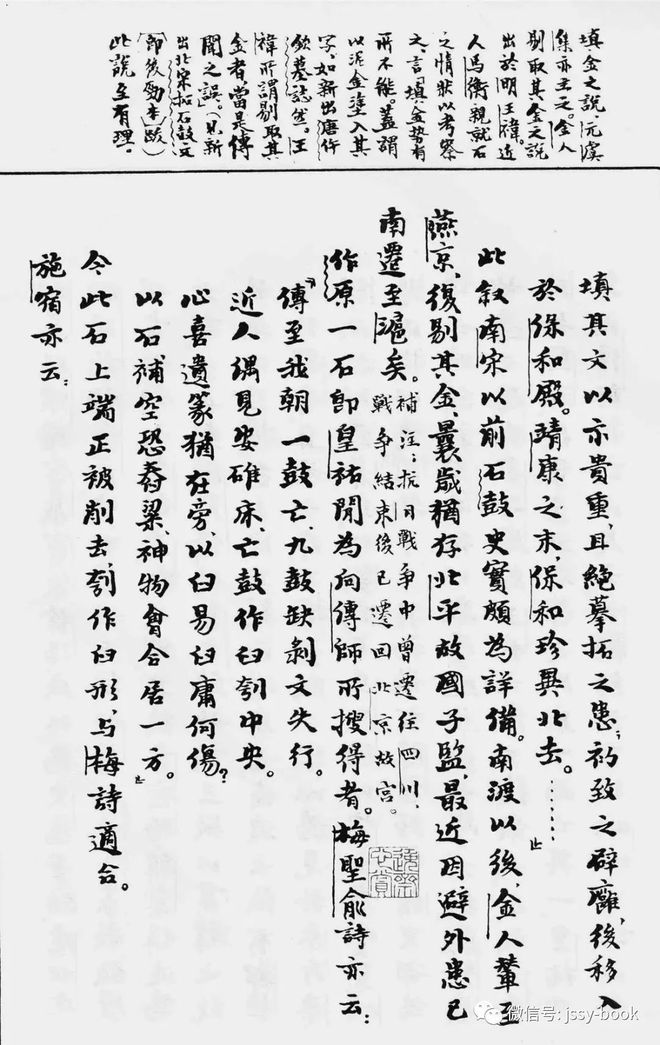 填金之说，沅潩
集亦主之。金人
剔取其金之说
出於明王禕。近
人馬衡親就石
之情狀以考察
之，言「填金势有
所不能。蓋謂
以泥金塗入其
字，如新出唐仵
欽墓誌然。王
禕所謂剔取其
金者，當是傳
聞之誤。」（見新
出北宋拓石鼓文
即後勁本跋）
此說至有理。
填其文以示貴重，且絕摹拓之患；初致之辟廱，後移入
於保和殿。靖康之末，保和珍異北去。……止
此敘南宋以前石鼓史實頗為詳備。南渡以後，金人輦至
燕京，復剔其金，曩歲猶存北平故國子監，最近因避外患已
南遷至滬矣。補注：抗日戰爭中曾遷往四川，
戰争結束後已遷回北京故宫。
作原一石即皇祐間為向傳師所搜得者。梅聖俞詩亦云：
「傳至我朝一鼓亡，九鼓缺剝文失行。
近人偶見安碓床，亡鼓作臼刳中央。
心喜遺篆猶在旁，以臼易臼庸何傷？
以石補空恐舂粱，神物會合居一方。止
今此石上端正被削去，刳作臼形，与梅詩適合。
施宿亦云：
微信号: jssy-book